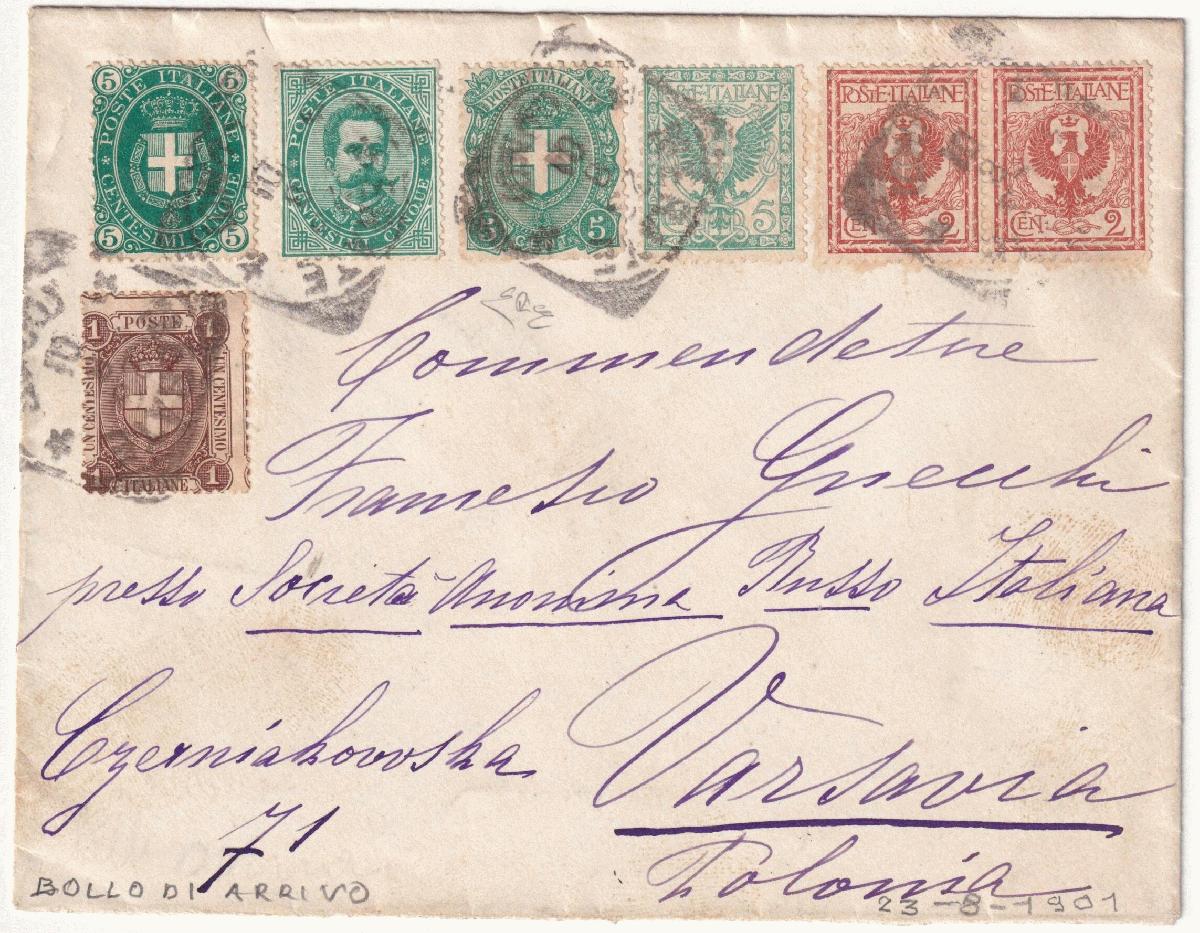 5 POSTE ITALIANE 5
5 CENTESIMI CINQUE 5
POSTE ITALIANE
CENTESIMI CINQUE
POSTE ITALIANE
5 5
POSTE-ITALIANE
5
POSTE-ITALIANE
CEN: 2
POSTE-ITALIANE
CEN: 2
1 POSTE 1
UN CENTESIMO UN CENTESIMO
1 ITALIANE 1
Commendatore
Francesco Gnecchi
presso Società Anonima Russo Italiana
Czerniakowska Varsavia
71 Polonia
BOLLO DI ARRIVO 23-8-1901